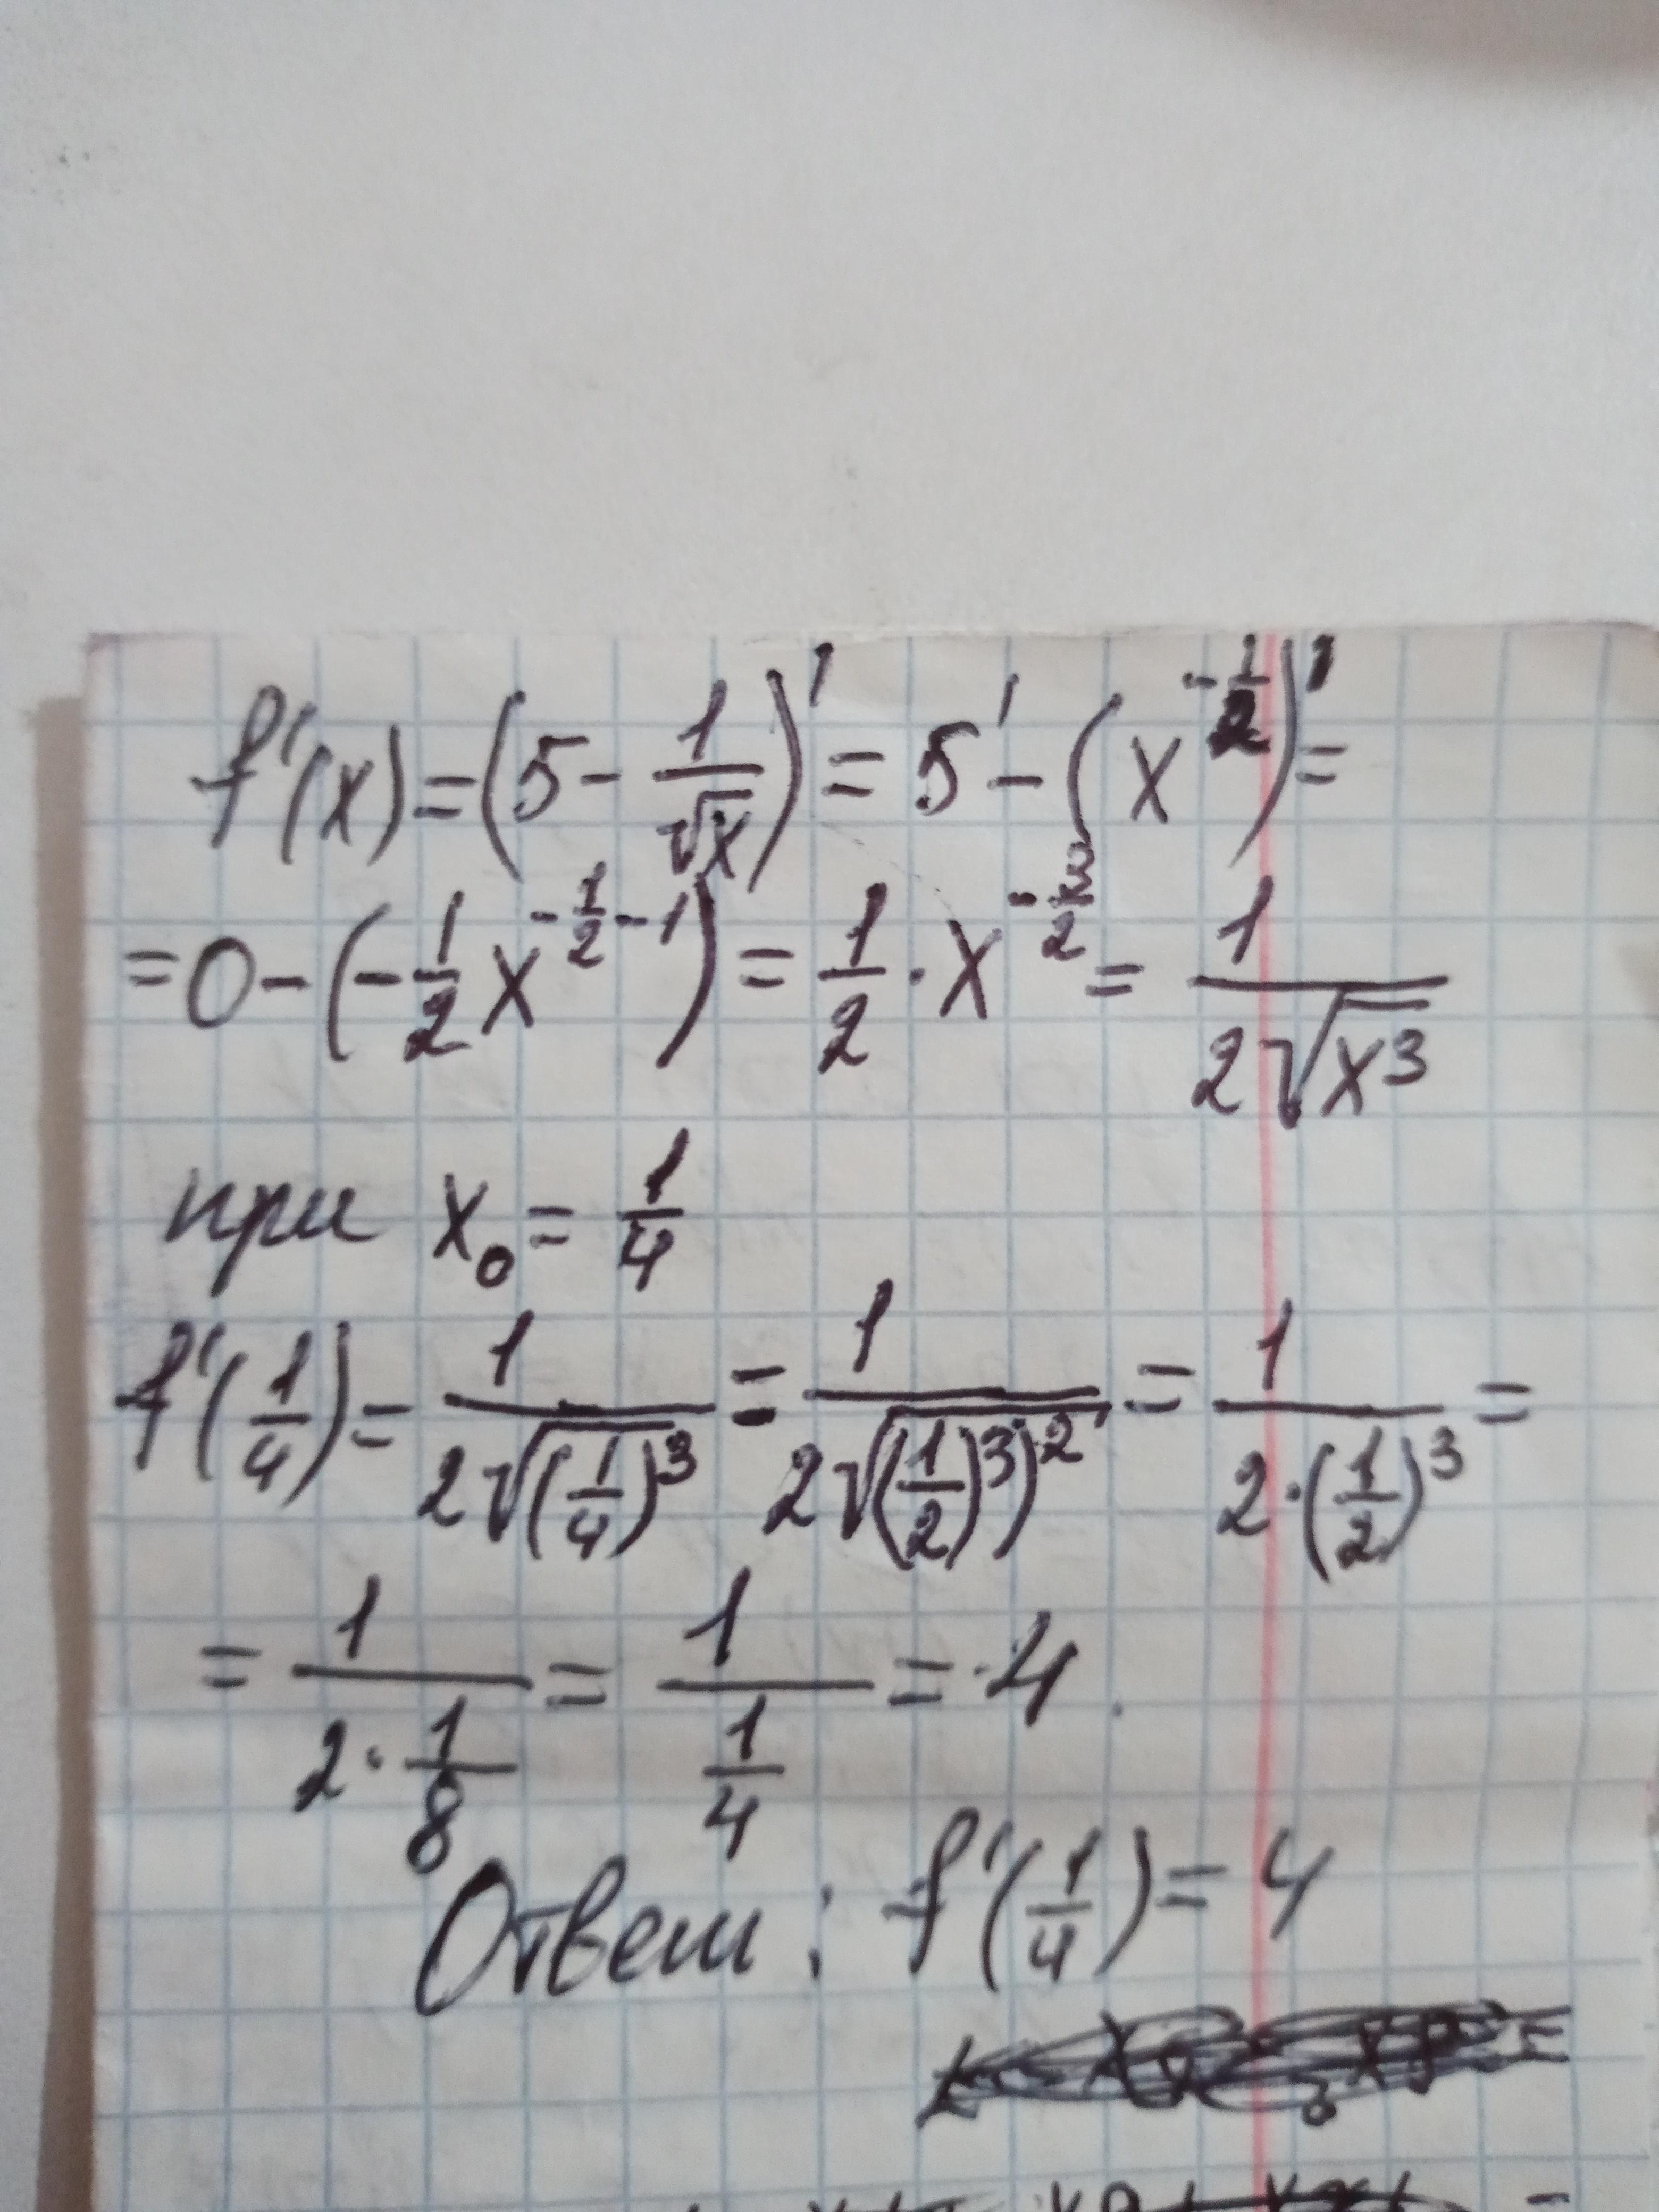 f'(x) = (5 - 1/√x)' = 5' - (x^(-1/2))' =
= 0 - (-1/2 x^(-1/2 - 1)) = 1/2 · x^(-3/2) = 1/(2√x³)
при x₀ = 1/4
f'(1/4) = 1/(2√(1/4)³) = 1/(2√((1/2)³)²) = 1/(2·(1/2)³) =
= 1/(2·1/8) = 1/(1/4) = 4.
Ответ: f'(1/4) = 4